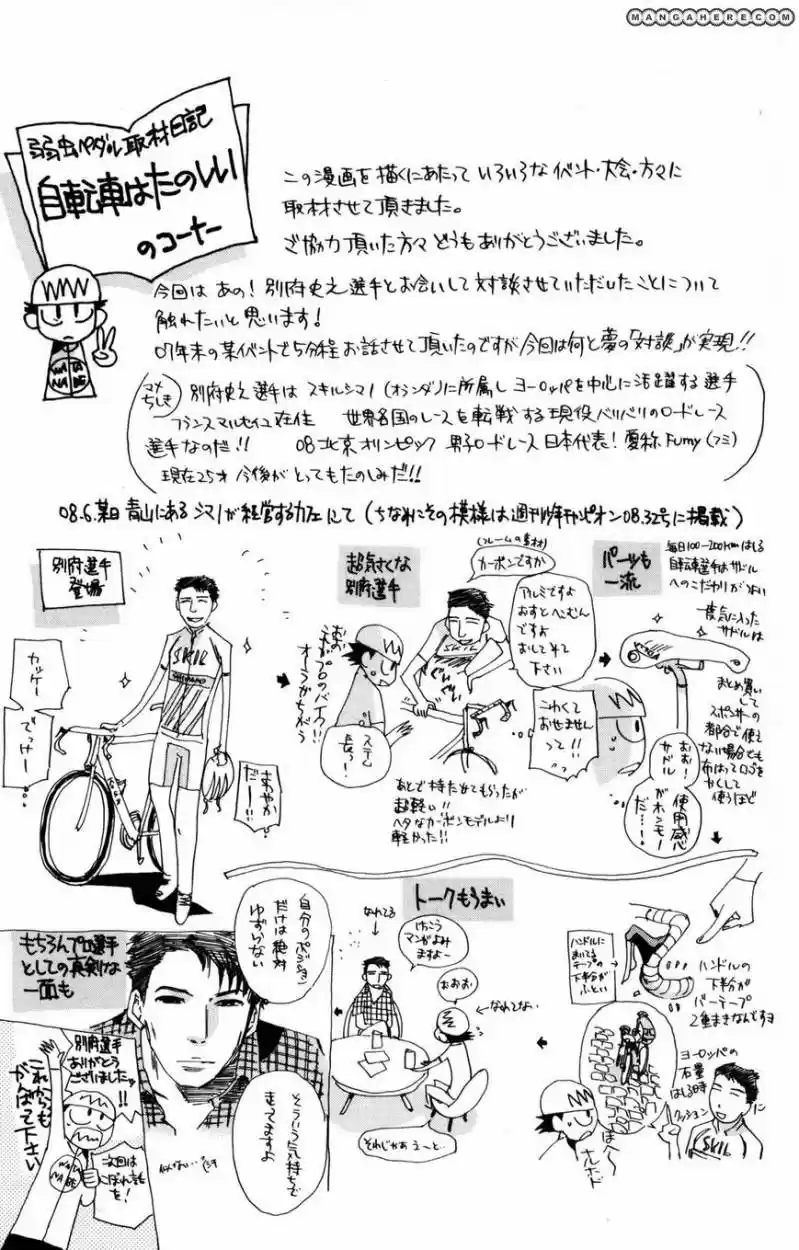 MANGAHERE.COM
弱虫ペダル取材日記
自転車はたのしい
のコーナー
この漫画を描くにあたって いろいろなイベント・大会・方々に
取材させて頂きました。
ご協力頂いた方々 どうもありがとうございました。
今回は あの! 別府史之選手とお会いして対談させていただいたことについて
触れたいと思います!
07年末の某イベントで5分程お話させて頂いたのですが今回は何と夢の「対談」が実現!!
マメちしき
別府史之選手は スキルシマノ(オランダ)に所属し ヨーロッパを中心に活躍する選手
フランスマルセイユ在住 世界各国のレースを転戦する現役バリバリのロードレース
選手なのだ!! 08北京オリンピック 男子ロードレース日本代表! 愛称Fumy(フミ)
現在25才 今後がとってもたのしみだ!!
08.6.某日 青山にある シマノが経営するカフェにて(ちなみにその模様は週刊少年チャンピオン08.32号に掲載)
別府選手
登場
カッケー
でっけー…
さわやか
だー…!!
SKIL
SHIMANO
超気さくな
別府選手
(フレームの素材)
カーボンですか
アルミですよ
おすとへこむん
ですよ
おしてみて
下さい
プロのバイク!!
オーラがちがう
ステム
長っ!
SKIL
こわくて
おせません
って!!
あとで持たせてもらったが
超軽い!!
ヘタなカーボンモデルより
軽かった!!
パーツも
一流
毎日100-200kmはしる
自転車選手はサドル
へのこだわりがつよい
一度気に入った
サドルは
まとめ買い
して
スポンサーの
都合で使え
ない場合でも
布はってロゴを
かくして
使うほど
おお!
サドル
使用感
がホンモー
だ…!
ハンドルに
まいてる
テープの
下半分が
ふとい
ハンドルの
下半分が
バーテープ
2重まきなんですヨ
ヨーロッパの
石畳
はしる時
クッション
に
SKIL
ほへ〜
ナルホド
トークもうまい
なれてる
けっこう
マンガよみ
ますよー
おおお
←なれてない
それじゃあ えーと…
もちろんプロ選手
としての真剣な
一面も
自分のポジション
だけは絶対
ゆずらない
そういう気持ちで
走ってますよ
別府選手
ありがとう
ございましたッ
!!
これからも
がんばって下さい
次回は
こぼれ話
を!
WATA
NABE